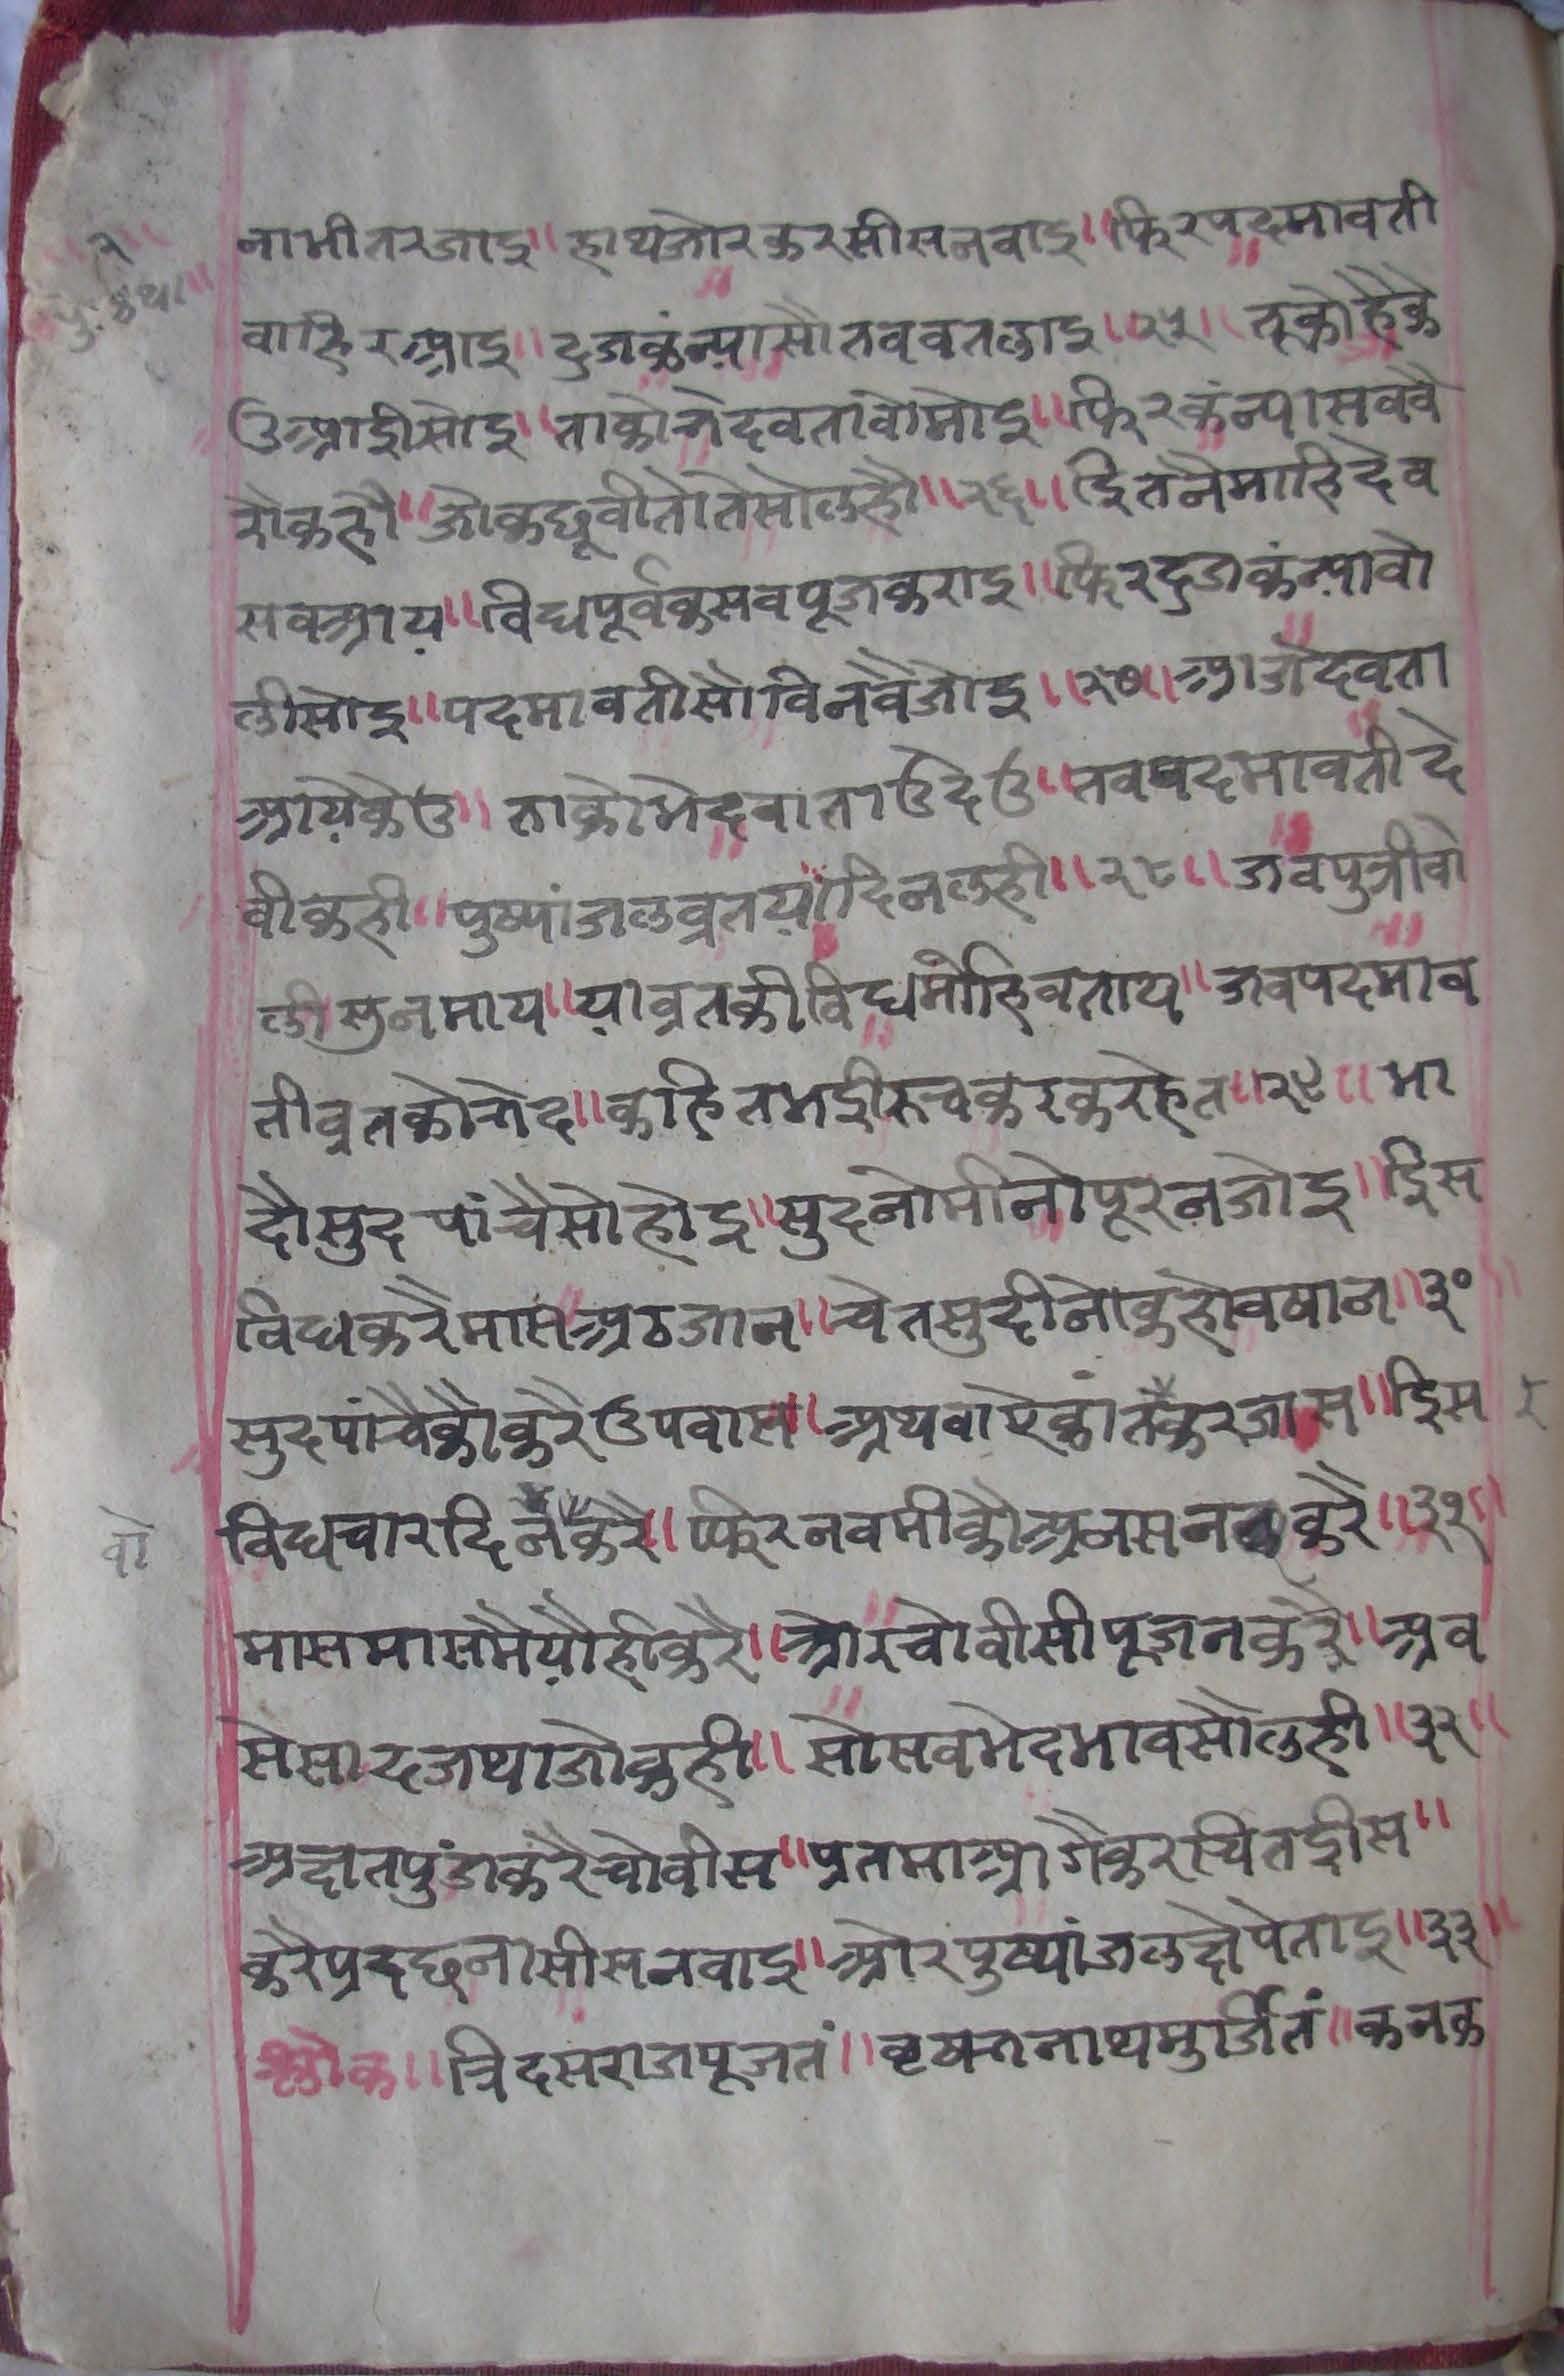 २
पु. कथा
नाभीतरजाइ॥ हाथजोरकरसीसनवाइ॥ फिरपदमावती
वाहिरआइ॥ दुजकंन्यासौतववतलाइ॥२५॥ तूकोहैके
उआईसोइ॥ ताकोभेदवतावोमोइ॥ फिरकंन्यासववै
सेकहौ॥ जोकछूवीतोतेसोलहौ॥२६॥ इतनैमाहिदेव
सवआय॥ विधपूर्वकसवपूजकराइ॥ फिरदुजकंन्यावो
लीसोइ॥ पदमावतीसौविनवैजोइ॥२७॥ आजदेवता
आयेकेउ॥ ताकोभेदवाताउदेउ॥ तवपदमावतीदे
वीकही॥ पुष्पांजलव्रतयादिनलही॥२८॥ जवपुत्रीवो
लीसुनमाय॥ याव्रतकीविधमोहिवताय॥ जवपदमाव
तीव्रतकोभेद॥ कहितभईरुचकरकरहेत॥२९॥ भा
दौसुदपांचैसोहोइ॥ सुदनोमीनोपूरनजोइ॥ इस
विधकरैमासअठजान॥ चेतसुदीनोकहोवषान॥३०
सुदपांचैकौकरैउपवास॥ अथवाऐकांतकरजास॥ इस
विधचारदिनकरै॥ फिरनवमीकोअनसनकरै॥३१॥
वो
मासमासमैयौहीकरै॥ औरचोवीसीपूजनकरै॥ अव
सेसादजथाजोकही॥ सोसवभेदभावसोलही॥३२॥
अक्षतपुंजकरैचोवीस॥ प्रतमाआगैकरथितईस॥
करैप्रदछनासीसनवाइ॥ ओरपुष्पांजलक्षेपेताइ॥३३॥
श्लोक॥ त्रिदसराजपूजतं॥ वृषभनाथमुर्जितं॥ कनक